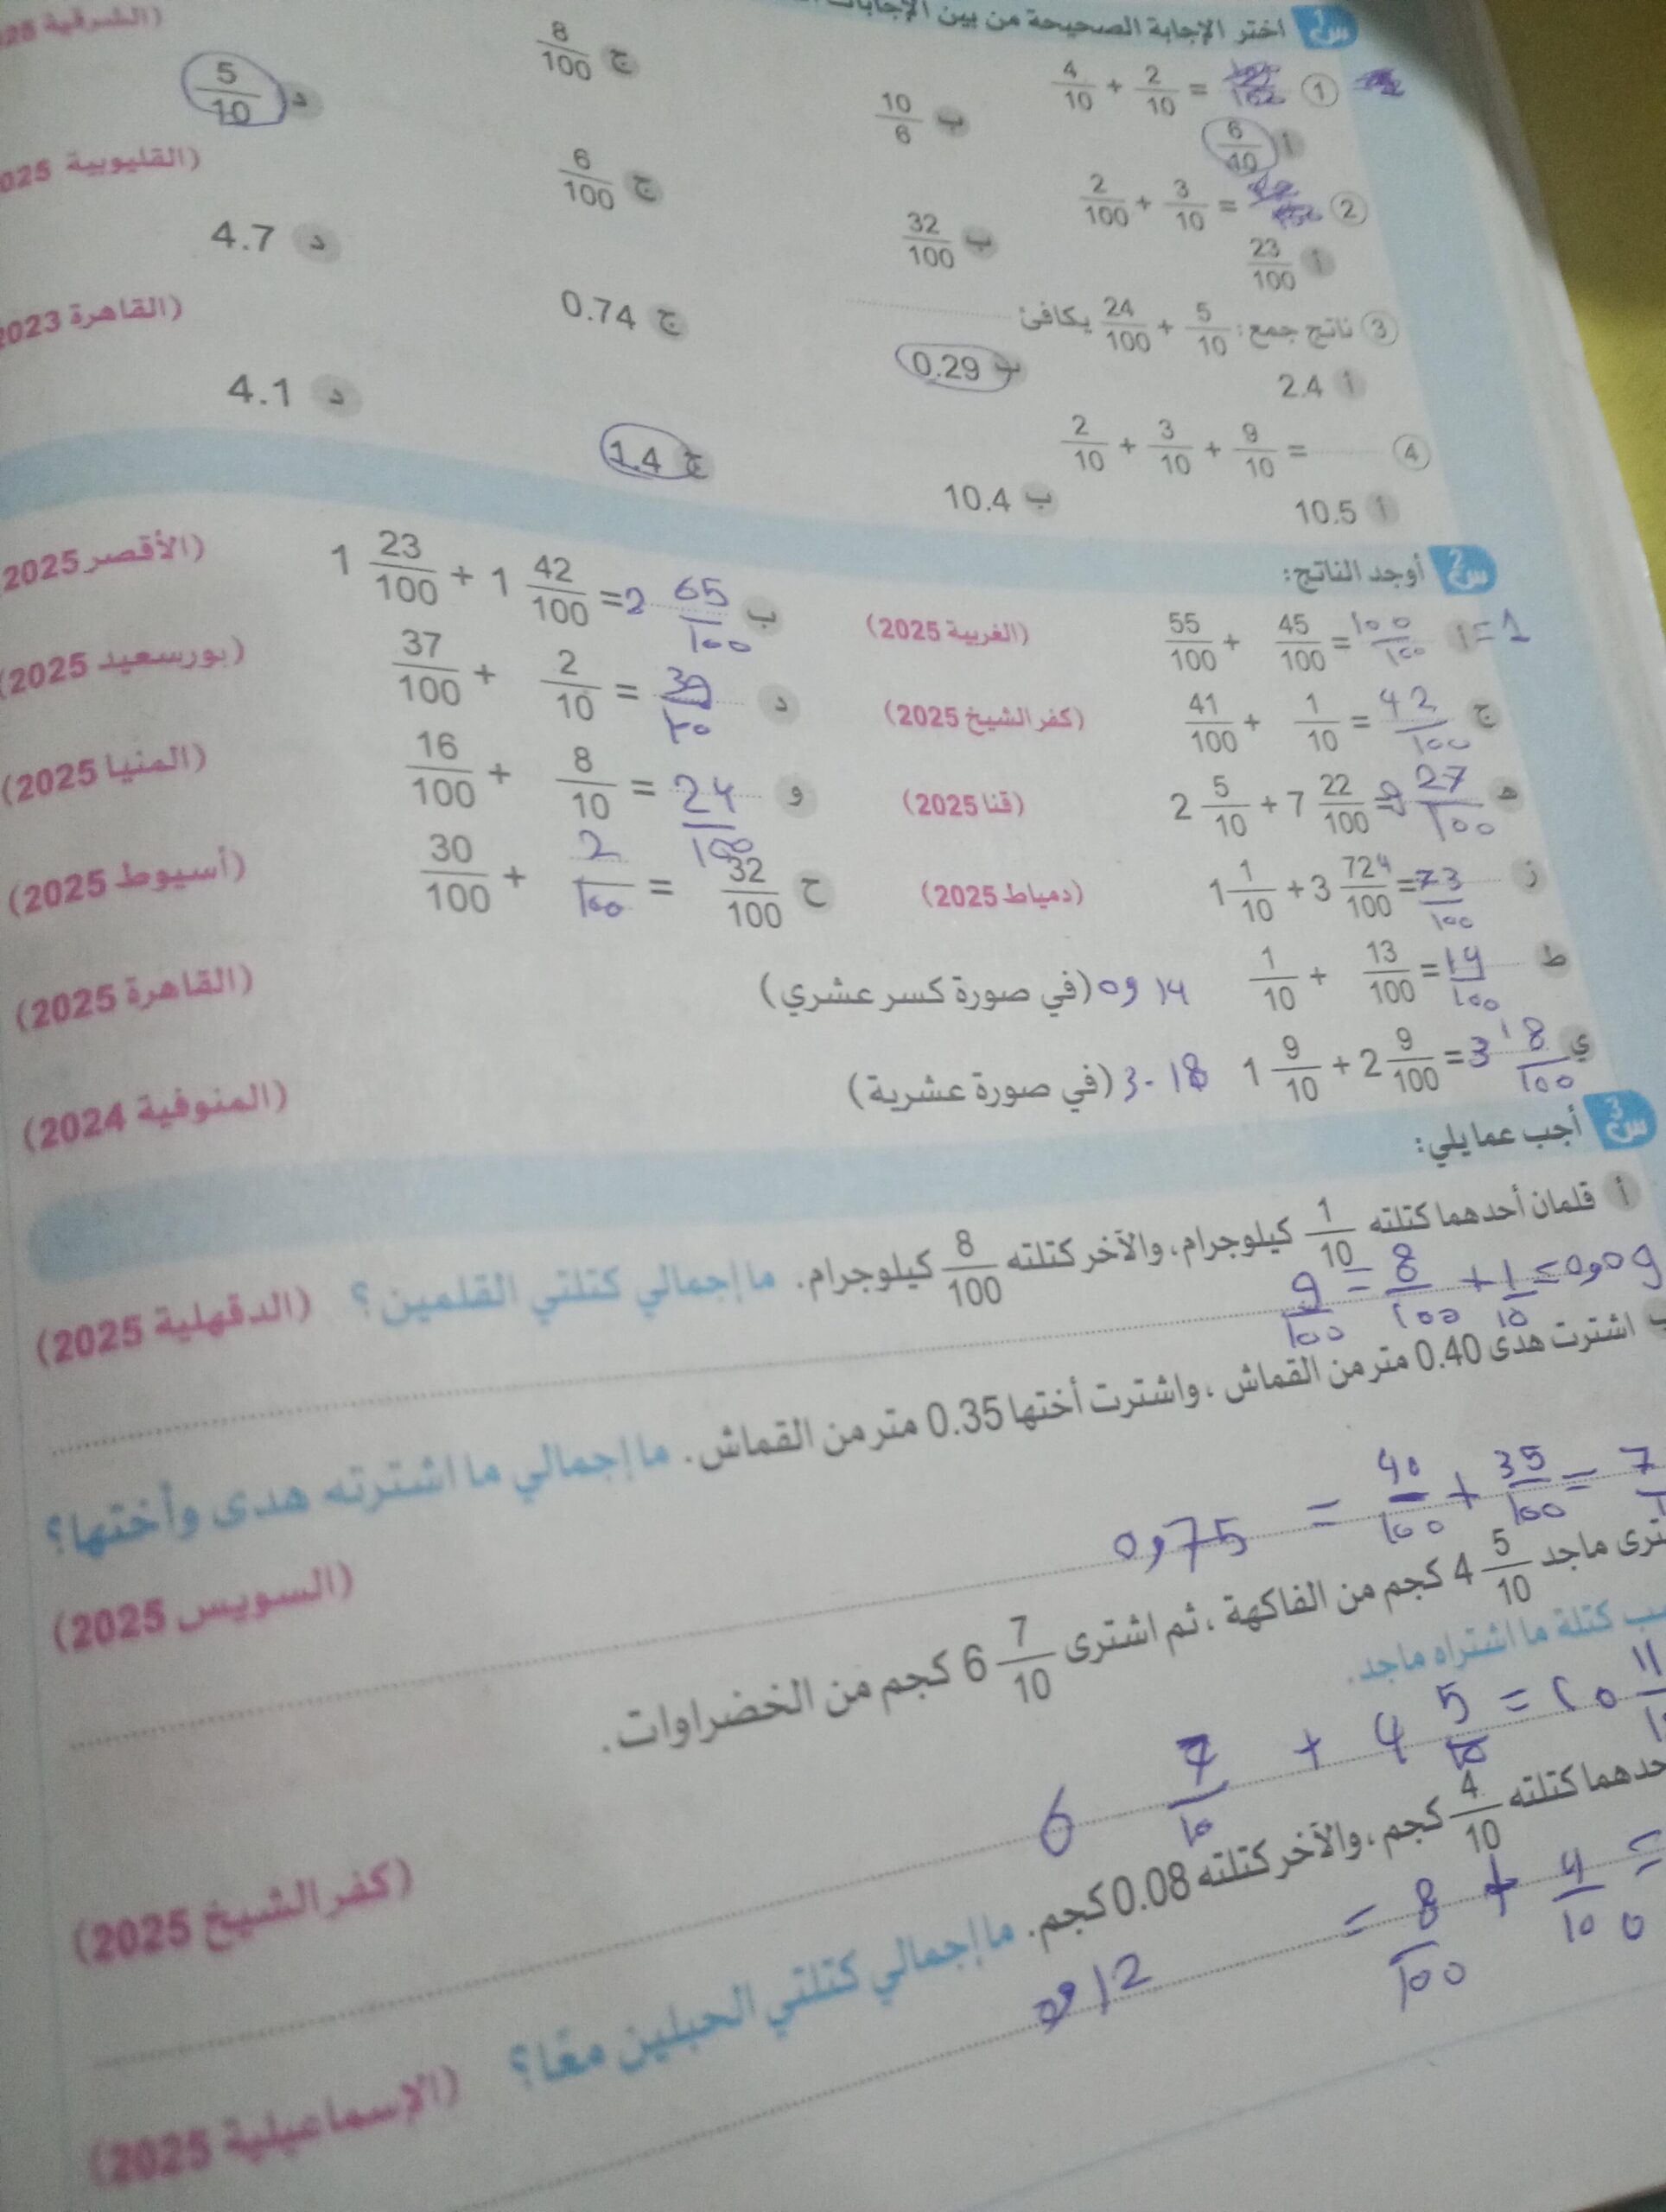 س1 اختر الإجابة الصحيحة من بين الإجابات
① 4/10 + 2/10 =
أ 6/10 ب 10/6 ج 8/100 د 5/10
② 2/100 + 3/10 =
أ 23/100 ب 32/100 ج 6/100
③ ناتج جمع: 5/10 + 24/100 يكافئ
أ 2.4 ب 0.29 ج 0.74 د 4.7
④ 2/10 + 3/10 + 9/10 =
أ 10.5 ب 10.4 ج 1.4 د 4.1
(الشرقية
(القليوبية 025
(القاهرة 2023
س2 أوجد الناتج:
أ 55/100 + 45/100 = 100/100 = 1 (الغربية 2025)
ب 1 23/100 + 1 42/100 = 2 65/100 (الأقصر 2025
ج 41/100 + 1/10 = 42/100 (كفر الشيخ 2025)
د 37/100 + 2/10 = 39/10 (بورسعيد 2025)
هـ 2 5/10 + 7 22/100 = 9 27/100 (قنا 2025)
و 16/100 + 8/10 = 24/100 (المنيا 2025)
ز 1 1/10 + 3 72/100 = 4 73/100 (دمياط 2025)
ح 30/100 + 2/100 = 32/100 (أسيوط 2025)
ط 1/10 + 13/100 = 14/100 0,14 (في صورة كسر عشري) (القاهرة 2025)
ي 1 9/10 + 2 9/100 = 3 18/100 3.18 (في صورة عشرية) (المنوفية 2024)
س3 أجب عما يلي:
أ قلمان أحدهما كتلته 1/10 كيلوجرام، والآخر كتلته 8/100 كيلوجرام. ما إجمالي كتلتي القلمين؟ (الدقهلية 2025)
9/100 = 8/100 + 1/10 = 0,09
ب اشترت هدى 0.40 متر من القماش، واشترت أختها 0.35 متر من القماش. ما إجمالي ما اشترته هدى وأختها؟
(السويس 2025)
0,75 = 40/100 + 35/100 = 7
ترى ماجد 4 5/10 كجم من الفاكهة، ثم اشترى 6 7/10 كجم من الخضراوات.
سب كتلة ما اشتراه ماجد.
(كفر الشيخ 2025)
6 7/10 + 4 5/10 = 10 11
حدهما كتلته 4/10 كجم، والآخر كتلته 0.08 كجم. ما إجمالي كتلتي الحبلين معًا؟ (الإسماعيلية 2025)
0,12 = 8/100 + 4/100 =